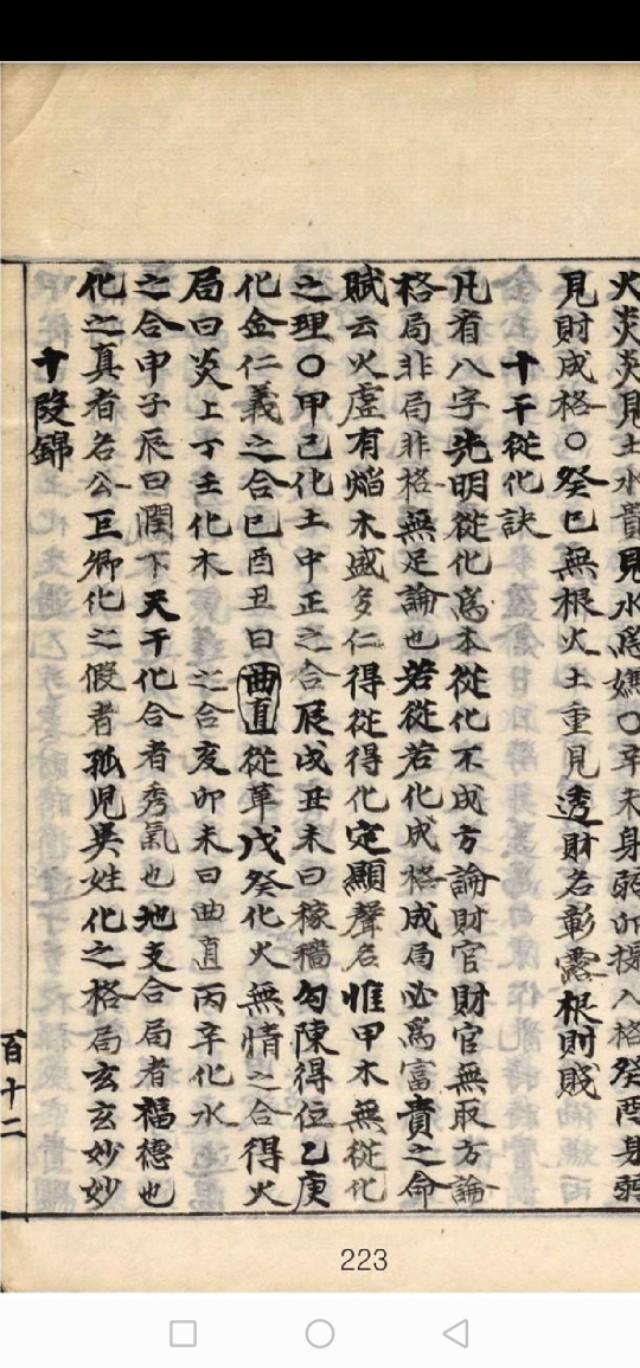 火炎炎見土水　見水爲　癸酉身弱
見財成格○癸巳無根火土重見透財名彰露根則賤
十干從化訣
凡看八字先明從化爲本從化不成方論財官財官無取方論
格局非局非格無足論也若從若化成格成局必爲富貴之命
賦云火虛有焰木盛多仁得從得化定顯聲名惟甲木無從化
之理○甲己化土中正之合辰戌丑未曰稼穡勾陳得位乙庚
化金仁義之合巳酉丑曰曲直從革戊癸化火無情之合得火
局曰炎上丁壬化木　之合亥卯未曰曲直丙辛化水
之合申子辰曰潤下天干化合者秀氣也地支合局者福德也
化之真者名公巨卿化之假者孤児異姓化之格局玄玄妙妙
十段錦
百十二
223